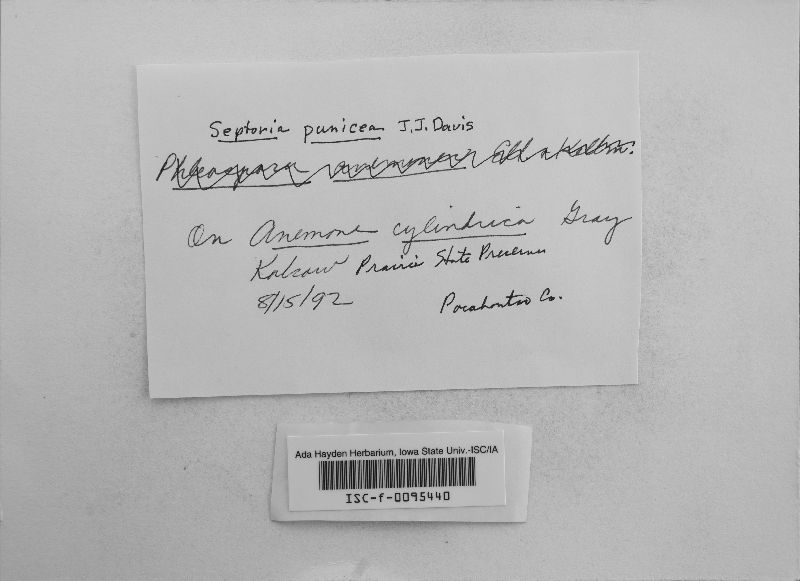 Septoria punicea J.J. Davis
Phleospora anemones Ell & Kellm.
On Anemone cylindrica Gray
Kalsow Prairie State Preserve
8/15/92 Pocahontas Co.
Ada Hayden Herbarium, Iowa State Univ.-ISC/IA
ISC-f-0095440